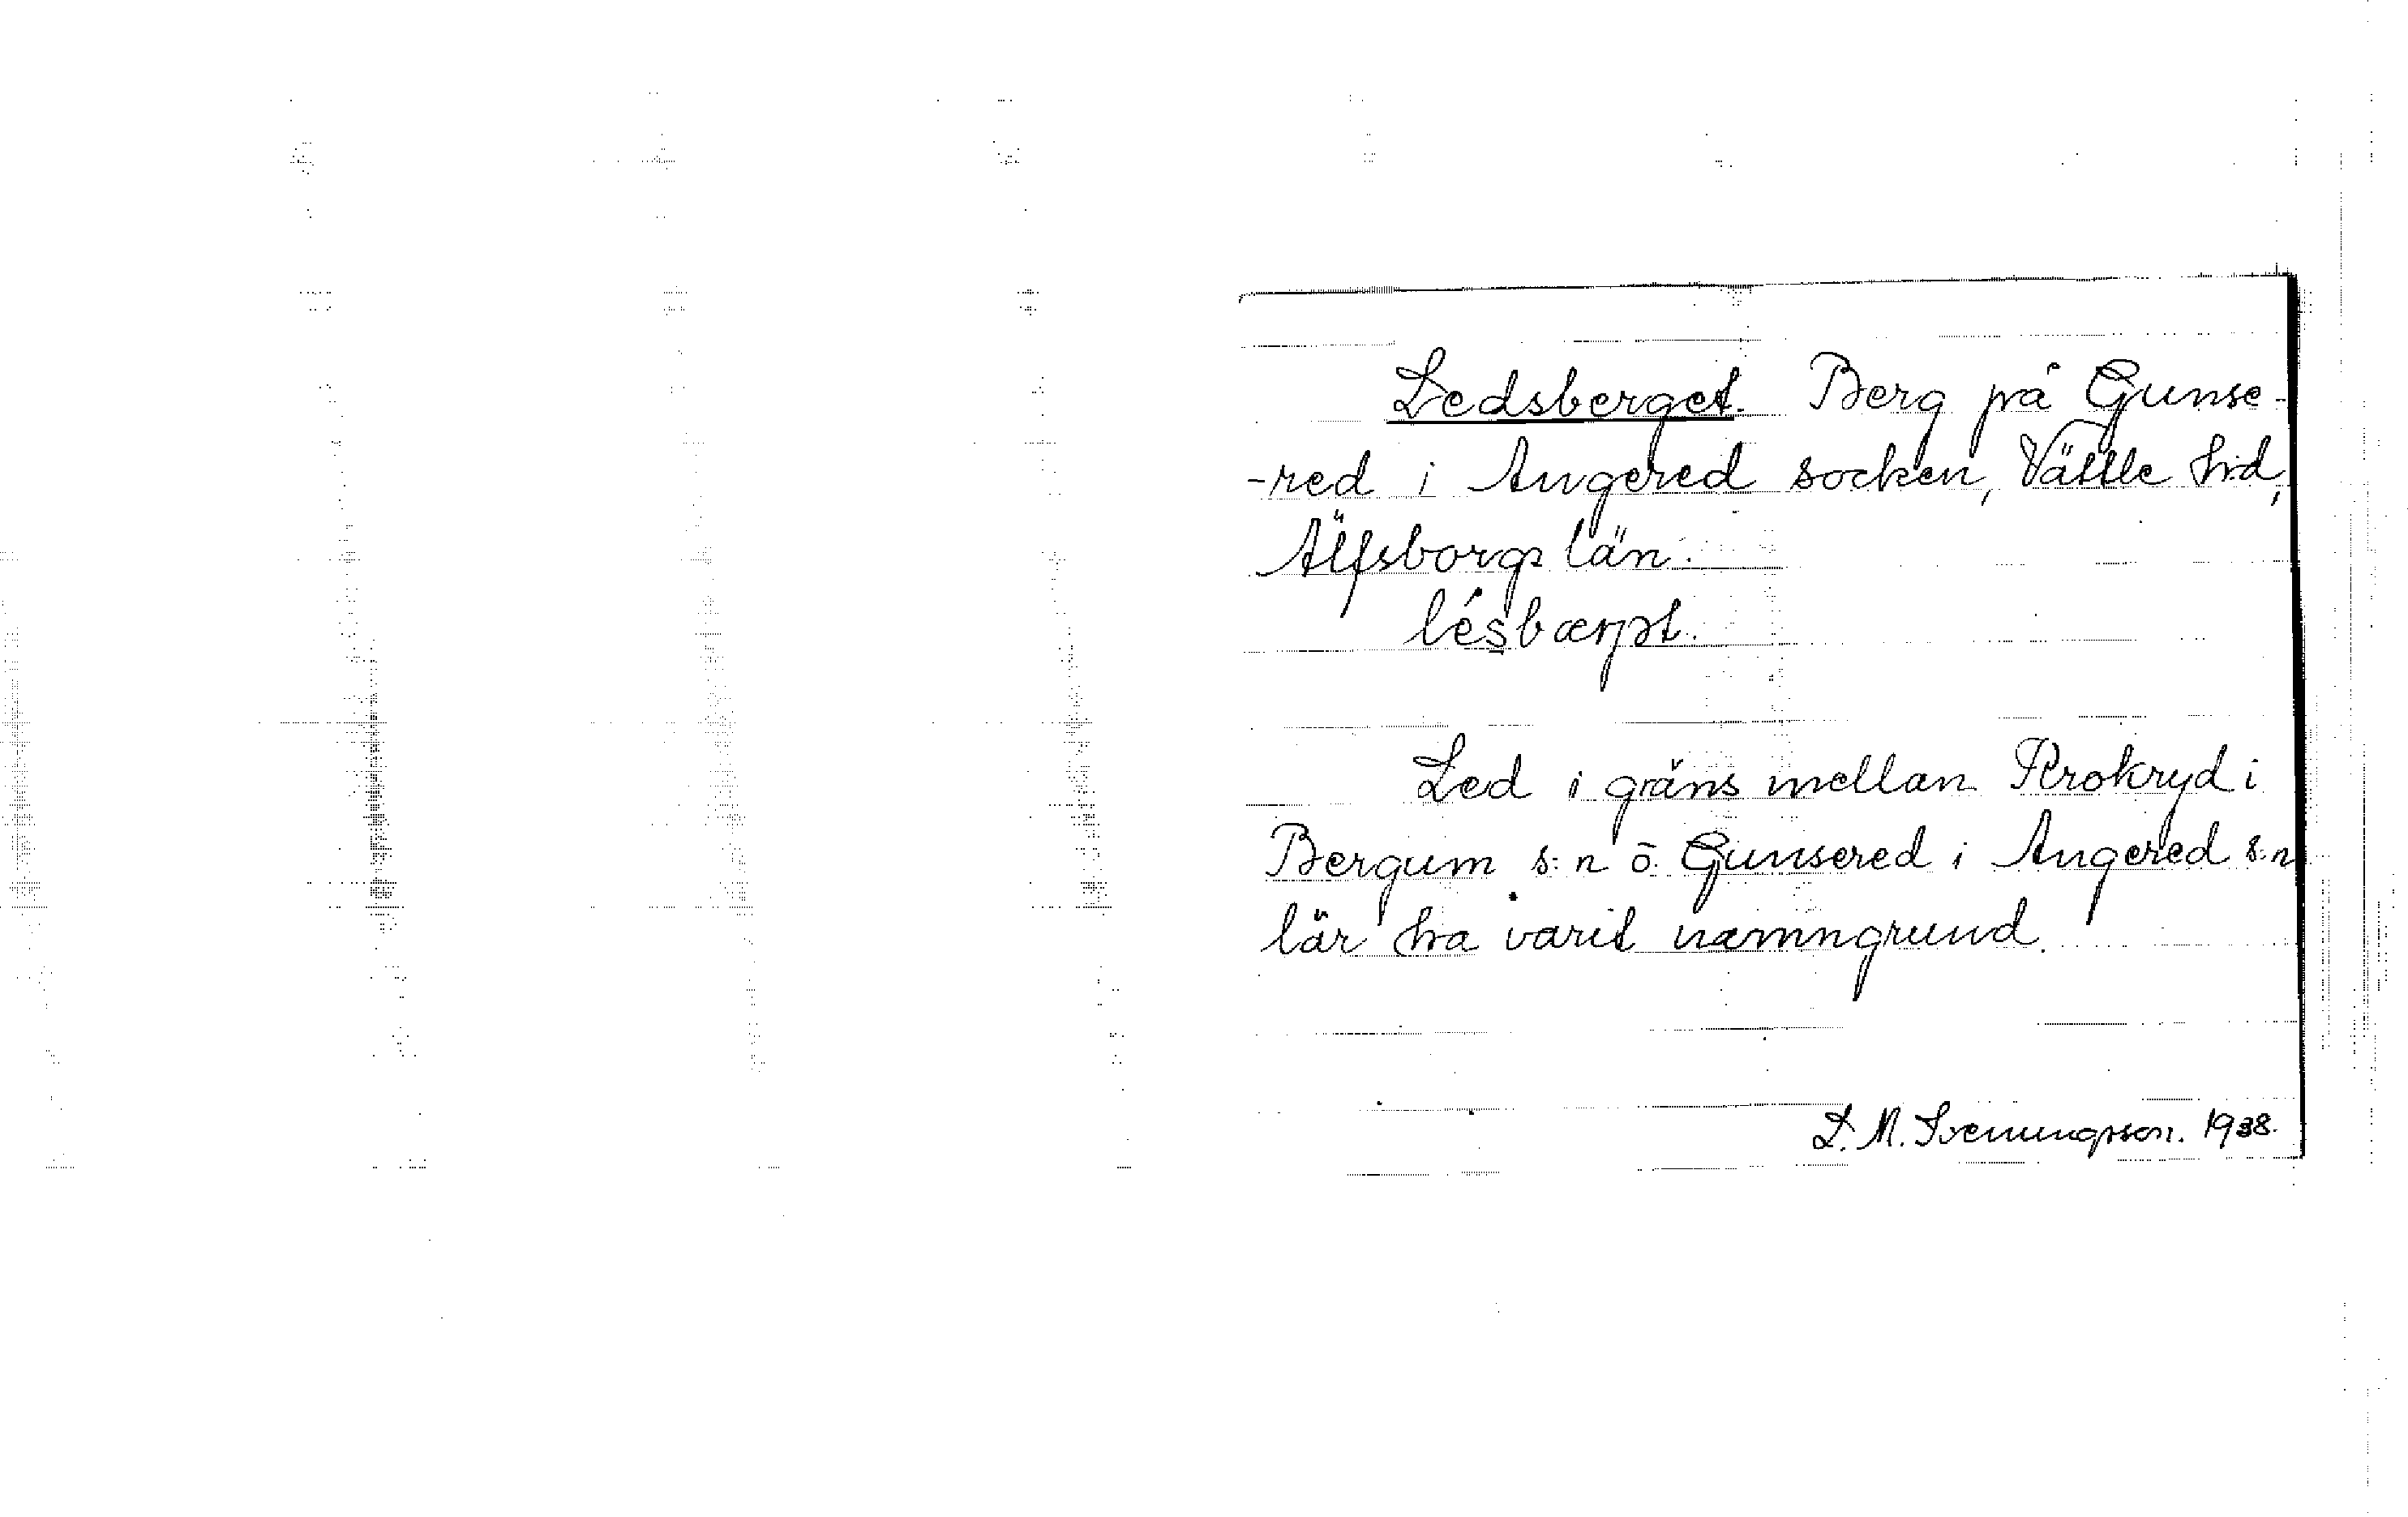 Ledsberget. Berg på Gunse-
-red i Angered socken, Vättle hd,
Älfsborgs län.
lésbærjət.
Led i gräns mellan Krokryd i
Bergum s:n o. Gunsered i Angered s:n
lär ha varit namngrund.
L. M. Svenungsson. 1938.